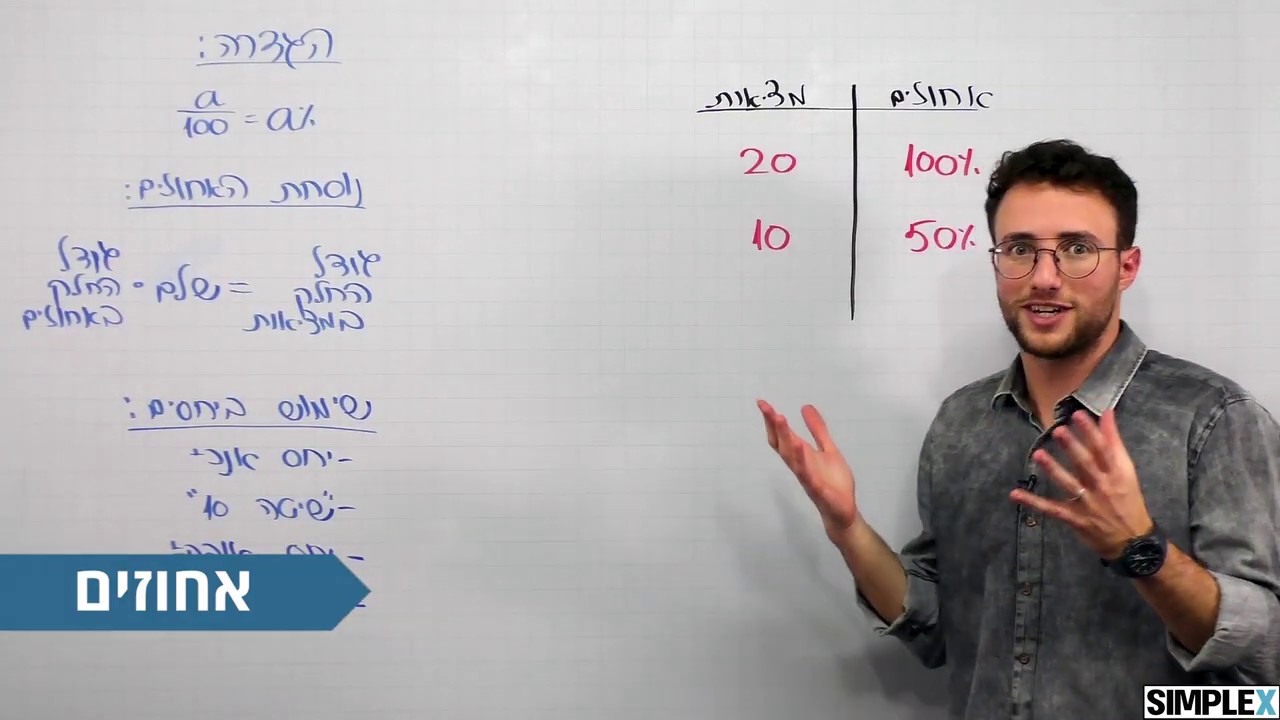 הגדרה:
a/100 = a%
נוסחת האחוזים:
גודל החלק במציאות = שלם • גודל החלק באחוזים
שימוש ביחסים:
- יחס אנכי
- "שיטה 10"
אחוזים
מציאות | אחוזים
20 | 100%
10 | 50%
SIMPLEX